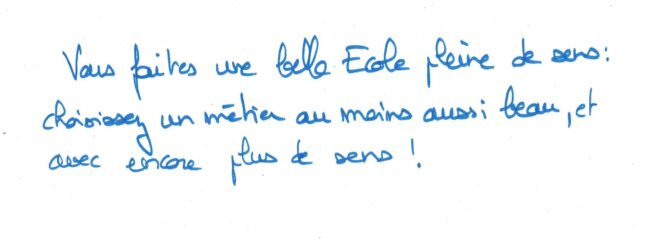 Vous faites une belle Ecole pleine de sens :
choisissez un métier au moins aussi beau, et
avec encore plus de sens !